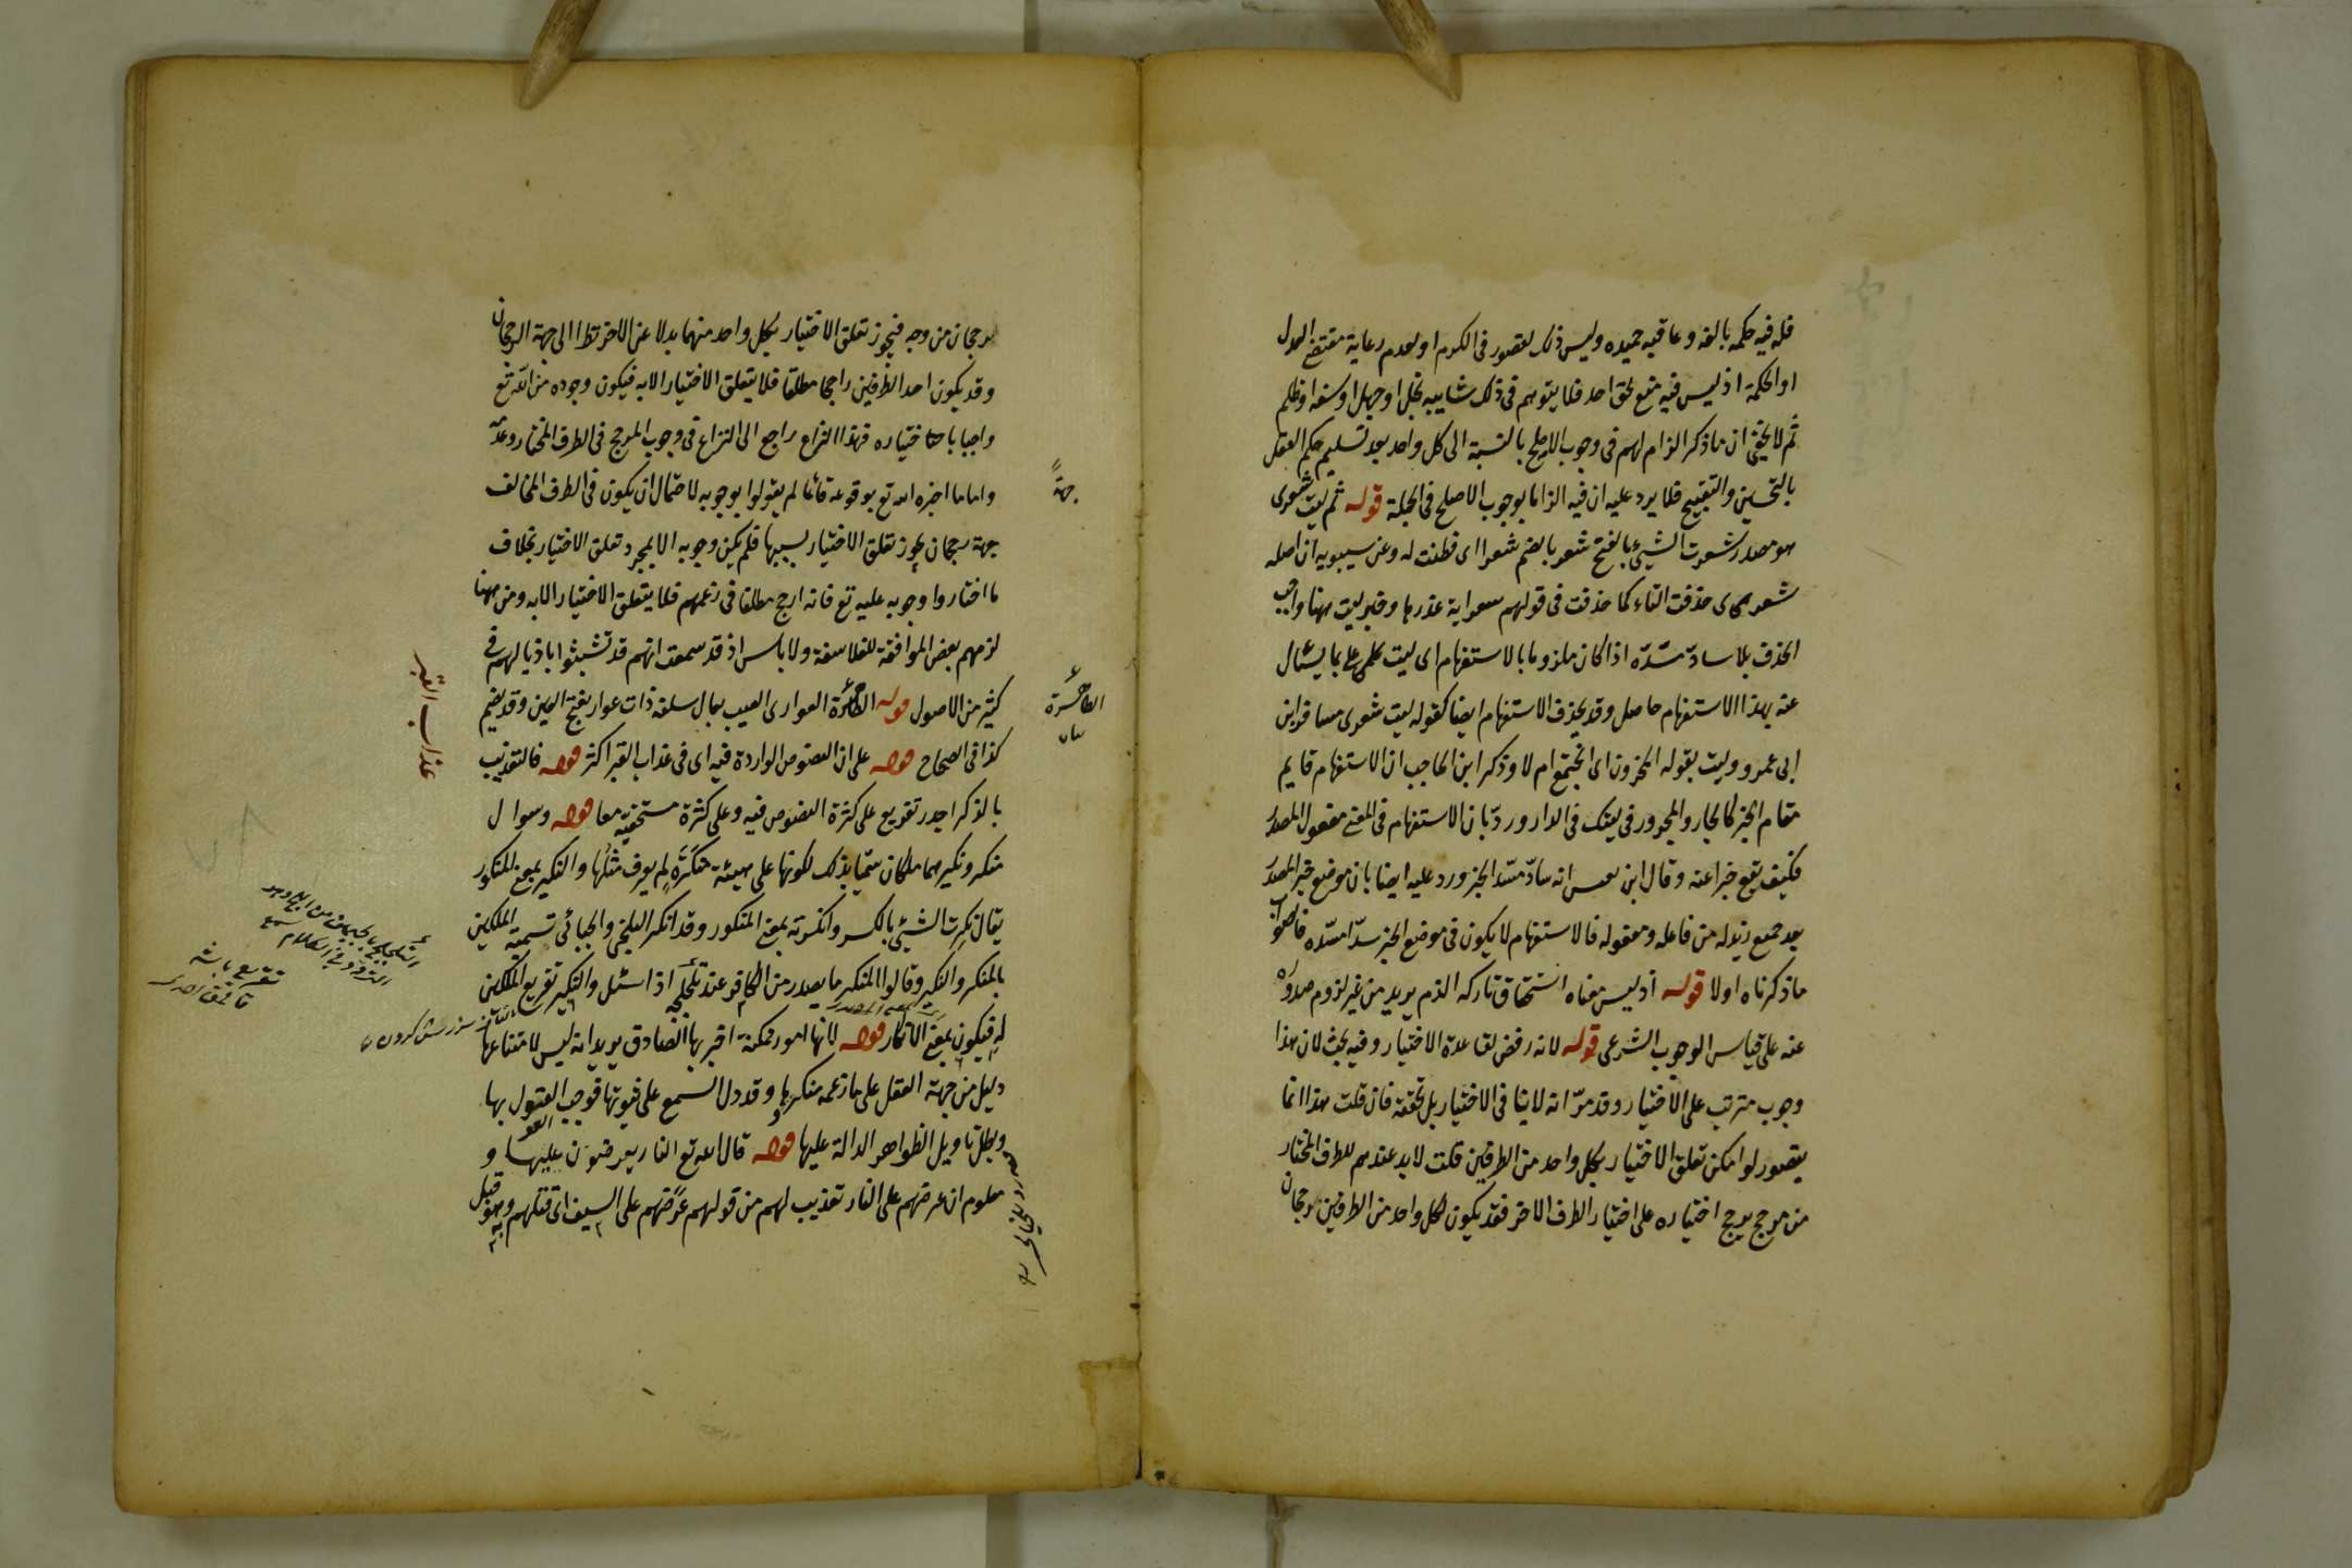 فله فيه حكمة بالغة وعاقبة حميدة وليس ذلك لقصور فى الكرم او لعدم رعاية مقتضى العدل
او الحكمة اذ ليس فيه منع لحق احد فلا يتوهم فى ذلك شايبه بخل او جهل او سفه او ظلم
ثم لا يخفى ان ما ذكر الزام لهم فى وجوب الاصلح بالنسبة الى كل واحد بعد تسليم حكم العقل
بالتحسين والتقبيح فلا يرد عليه ان فيه الزاما بوجوب الاصلح فى الجملة قوله ثم ليت شعرى
هو مصدر شعرت الشيئ بالفتح شعر بالضم شعرا اى فطنت له وعن سيبويه ان اصله
شعرى حذفت التاء كما حذفت فى قولهم عذرها وخبر ليت ههنا واجب
الحذف بلا سادّ مسدّه اذا كان ملزوما بالاستفهام اى ليت علمى بما يسئال
عنه بهذا الاستفهام حاصل وقد يحذف الاستفهام ايضا كقوله ليت شعرى مسافر ابن
ابى عمرو وليت يقوله المحزون اى انجتمع ام لا وذكر ابن الحاجب ان الاستفهام قايم
مقام الخبر كالجار والمجرور فى ليتك فى الدار وردّ بان الاستفهام فى المعنى مفعول المصدر
فكيف يقع خبرا عنه وقال ابن يعيس انه سادّ مسد الخبز ورد عليه ايضا بان موضع خبر المصدر
بعد جميع ذيوله من فاعله ومفعوله فالاستفهام لا يكون فى موضع الخبر سدّا مسدّه فالصواب
ما ذكرناه اولا قوله اذ ليس معناه استحقاق تاركه الذم يريد من غير لزوم صدوره
عنه على قياس الوجوب الشرعى قوله لانه رفض لقاعدة الاختيار وفيه بحث لان هذا
وجوب مترتب على الاختيار وقد مرّ انه لا ينافى الاختيار بل تحققه فان قلت هذا انما
يتصور لو امكن تعلق الاختيار بكل واحد من الطرفين قلت لا بد عندهم للطرف المختار
من مرجح يرجح اختياره على اختيار الطرف الاخر فقد يكون لكل واحد من الطرفين رجحان
رجحان من وجه فيجوز تعلق الاختيار بكل واحد منهما بدلا عن الاخر نظرا الى جهة الرجحان
وقد يكون احد الطرفين راجحا مطلقا فلا يتعلق الاختيار الا به فيكون وجوده من الله تع
واجبا باختياره فهذا النزاع راجع الى النزاع فى وجوب المرجح فى الطرف المختار وعدمه
واما ما اخبره الله تع بوقوعه فانما لم يقولوا بوجوبه لاحتمال ان يكون فى الطرف المخالف
جهة رجحان يجوز تعلق الاختيار بسببها فلم يكن وجوبه الا بمجرد تعلق الاختيار بخلاف
جهة
ما اختاروا وجوبه عليه تع فانه ارجح مطلقا فى زعمهم فلا يتعلق الاختيار الا به ومن ههنا
لزمهم بعض الموافقة للفلاسفة ولا باس اذ قد سمعت انهم قد تشبثوا باذيالهم فى
كثير من الاصول قوله العوار اى العيب يقال سلعة ذات عوار بفتح العين وقد يضم
بيان
كذا فى الصحاح قوله على ان النصوص الواردة فيه اى فى عذاب القبر اكثر قوله فالتعذيب
عذاب القبر
بالذكر اجدر تفريع على كثرة النصوص فيه وعلى كثرة مستحقيه معا قوله وسوال
منكر ونكير هما ملكان سميا بذلك لكونها على هيئة منكرة لم يعرف مثلها والنكير بمعنى المنكور
يقال نكرت الشيئ بالكسر وانكرته بمعنى المنكور وقد انكر البلخى والجبائى تسمية الملكين
بالمنكر والنكير وقالوا المنكر ما يصدر من الكافر عند تلجلجه اذا سئل والنكير تقريع الملكين
له فيكون بمعنى الانكار قوله لانها امور ممكنة اخبر بها الصادق يريد انه ليس لامتناعها
دليل من جهة العقل على ما زعمه منكروها وقد دل السمع على ثبوتها فوجب القبول بها
وبطل تاويل الظواهر الدالة عليها قوله قال الله تع النار يعرضون عليها و
معلوم ان عرضهم على النار تعذيب لهم من قولهم عرضهم على السيف اى قتلهم به وهو قبل